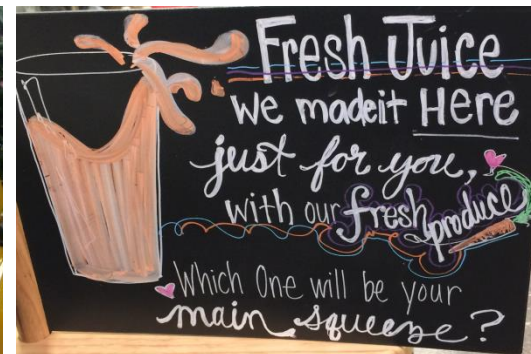 Fresh Juice
we made it Here
just for you,
with our fresh produce
Which One will be your
main squeeze?